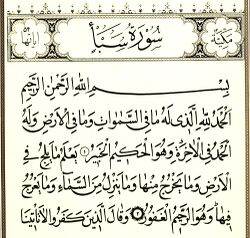 مكية
سورة سبأ
آياتها
بسم الله الرحمن الرحيم
الحمد لله الذي له ما في السموات وما في الأرض وله
الحمد في الآخرة وهو الحكيم الخبير ١ يعلم ما يلج في
الأرض وما يخرج منها وما ينزل من السماء وما يعرج
فيها وهو الرحيم الغفور ٢ وقال الذين كفروا لا تأتينا